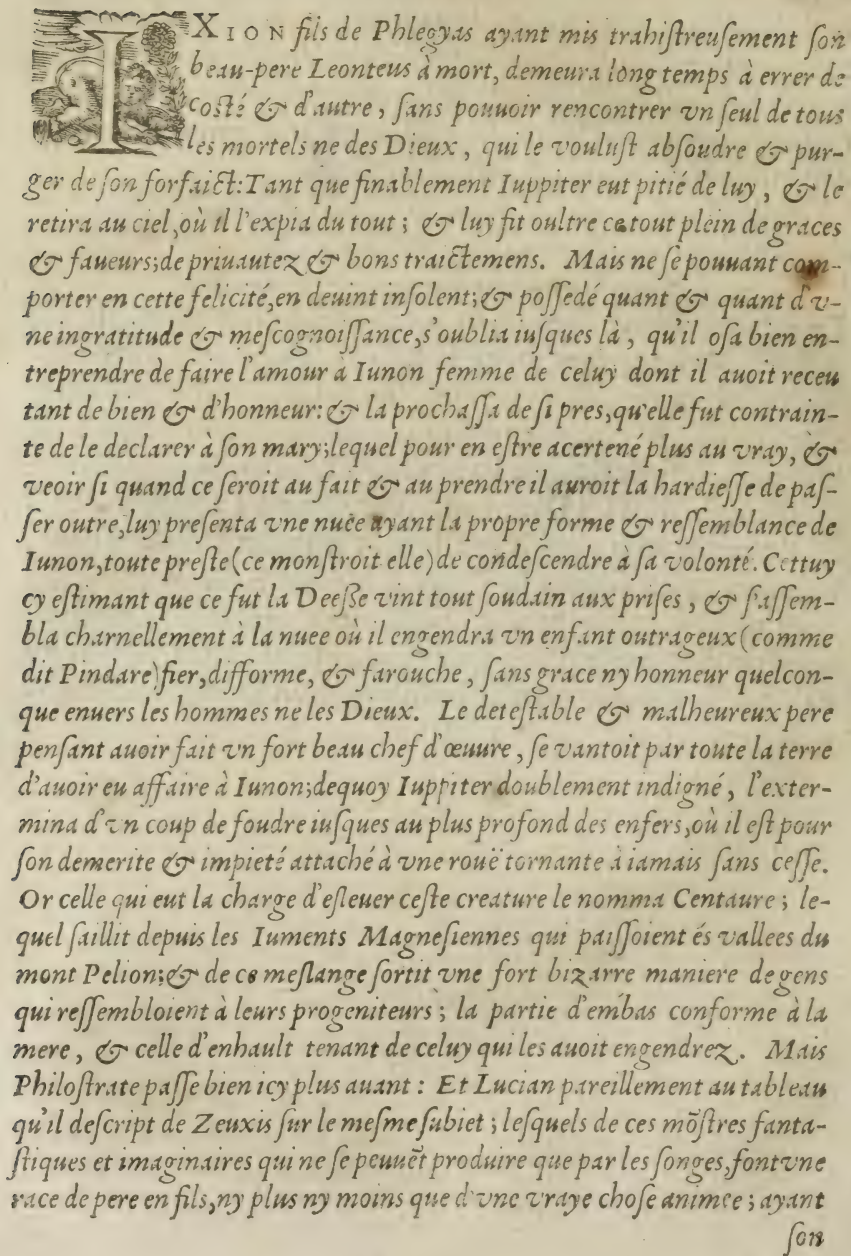 IXION fils de Phlegyas ayant mis trahiſtreuſement ſon
beau-pere Leonteus à mort, demeura long temps à errer de
coſté & d'autre, ſans pouuoir rencontrer vn ſeul de tous
les mortels ne des Dieux, qui le vouluſt abſoudre & pur-
ger de ſon forfaict: Tant que finablement Iuppiter eut pitié de luy, & le
retira au ciel, où il l'expia du tout; & luy fit oultre ce tout plein de graces
& faueurs; de priuautez & bons traictemens. Mais ne ſe pouuant com-
porter en cette felicité, en deuint inſolent; & poſſedé quant & quant d'v-
ne ingratitude & meſcognoiſſance, s'oublia iuſques là, qu'il oſa bien en-
treprendre de faire l'amour a Iunon femme de celuy dont il auoit receu
tant de bien & d'honneur: & la prochaſſa de ſi pres, qu'elle fut contrain-
te de le declarer à ſon mary; lequel pour en eſtre acertené plus au vray, &
veoir ſi quand ce ſeroit au fait & au prendre il auroit la hardieſſe de paſ-
ſer outre, luy preſenta vne nuëe ayant la propre forme & reſſemblance de
Iunon, toute preſte (ce monſtroit elle) de condeſcendre à ſa volonté. Cettuy
cy eſtimant que ce fut la Deeſſe vint tout ſoudain aux priſes, & ſ'aſſem-
bla charnellement à la nuee où il engendra vn enfant outrageux (comme
dit Pindare) fier, difforme, & farouche, ſans grace ny honneur quelcon-
que enuers les hommes ne les Dieux. Le deteſtable & malheureux pere
penſant auoir fait vn fort beau chef d'œuure, ſe vantoit par toute la terre
d'auoir eu affaire à Iunon; dequoy Iuppiter doublement indigné, l'exter-
mina d'vn coup de foudre iuſques au plus profond des enfers, où il eſt pour
ſon demerite & impieté attaché à vne rouë tornante à iamais ſans ceſſe.
Or celle qui eut la charge d'eſleuer ceſte creature le nomma Centaure; le-
quel ſaillit depuis les Iuments Magneſiennes qui paiſſoient és vallees du
mont Pelion; & de ce meſlange ſortit vne fort bizarre maniere de gens
qui reſſembloient à leurs progeniteurs; la partie d'embas conforme à la
mere, & celle d'enhault tenant de celuy qui les auoit engendrez. Mais
Philoſtrate paſſe bien icy plus auant: Et Lucian pareillement au tableau
qu'il deſcript de Zeuxis ſur le meſme ſubiet; leſquels de ces mõſtres fanta-
ſtiques et imaginaires qui ne ſe peuuẽt produire que par les ſonges, font vne
race de pere en fils, ny plus ny moins que d'vne vraye choſe animee; ayant
ſon